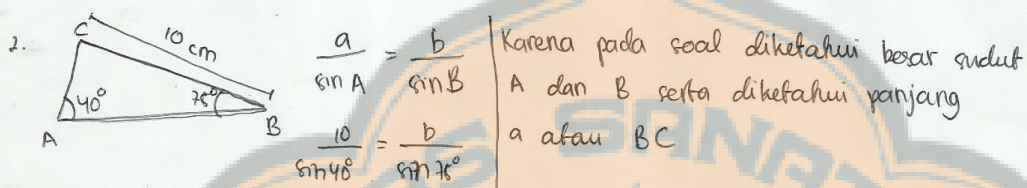 2.
C
10 cm
40°
75°
A
B
a/sin A = b/sin B
10/sin 40° = b/sin 75°
Karena pada soal diketahui besar sudut
A dan B serta diketahui panjang
a atau BC